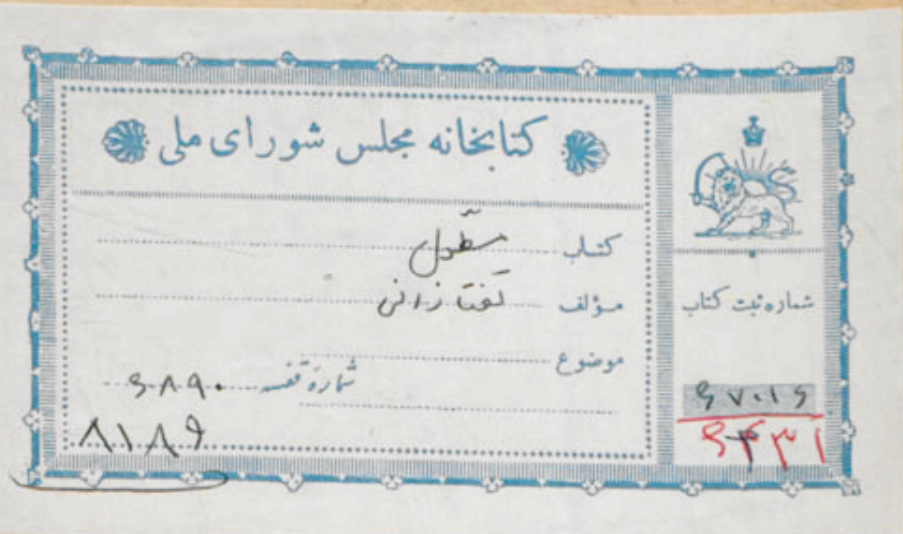 کتابخانه مجلس شورای ملی
کتاب مطوّل
مؤلف تفتازانی
موضوع
شمارۀ قفسه ۶۰۸۹۰
۸۱۸۶
شماره ثبت کتاب
۶۷۰۱۶
۶۴۳۱